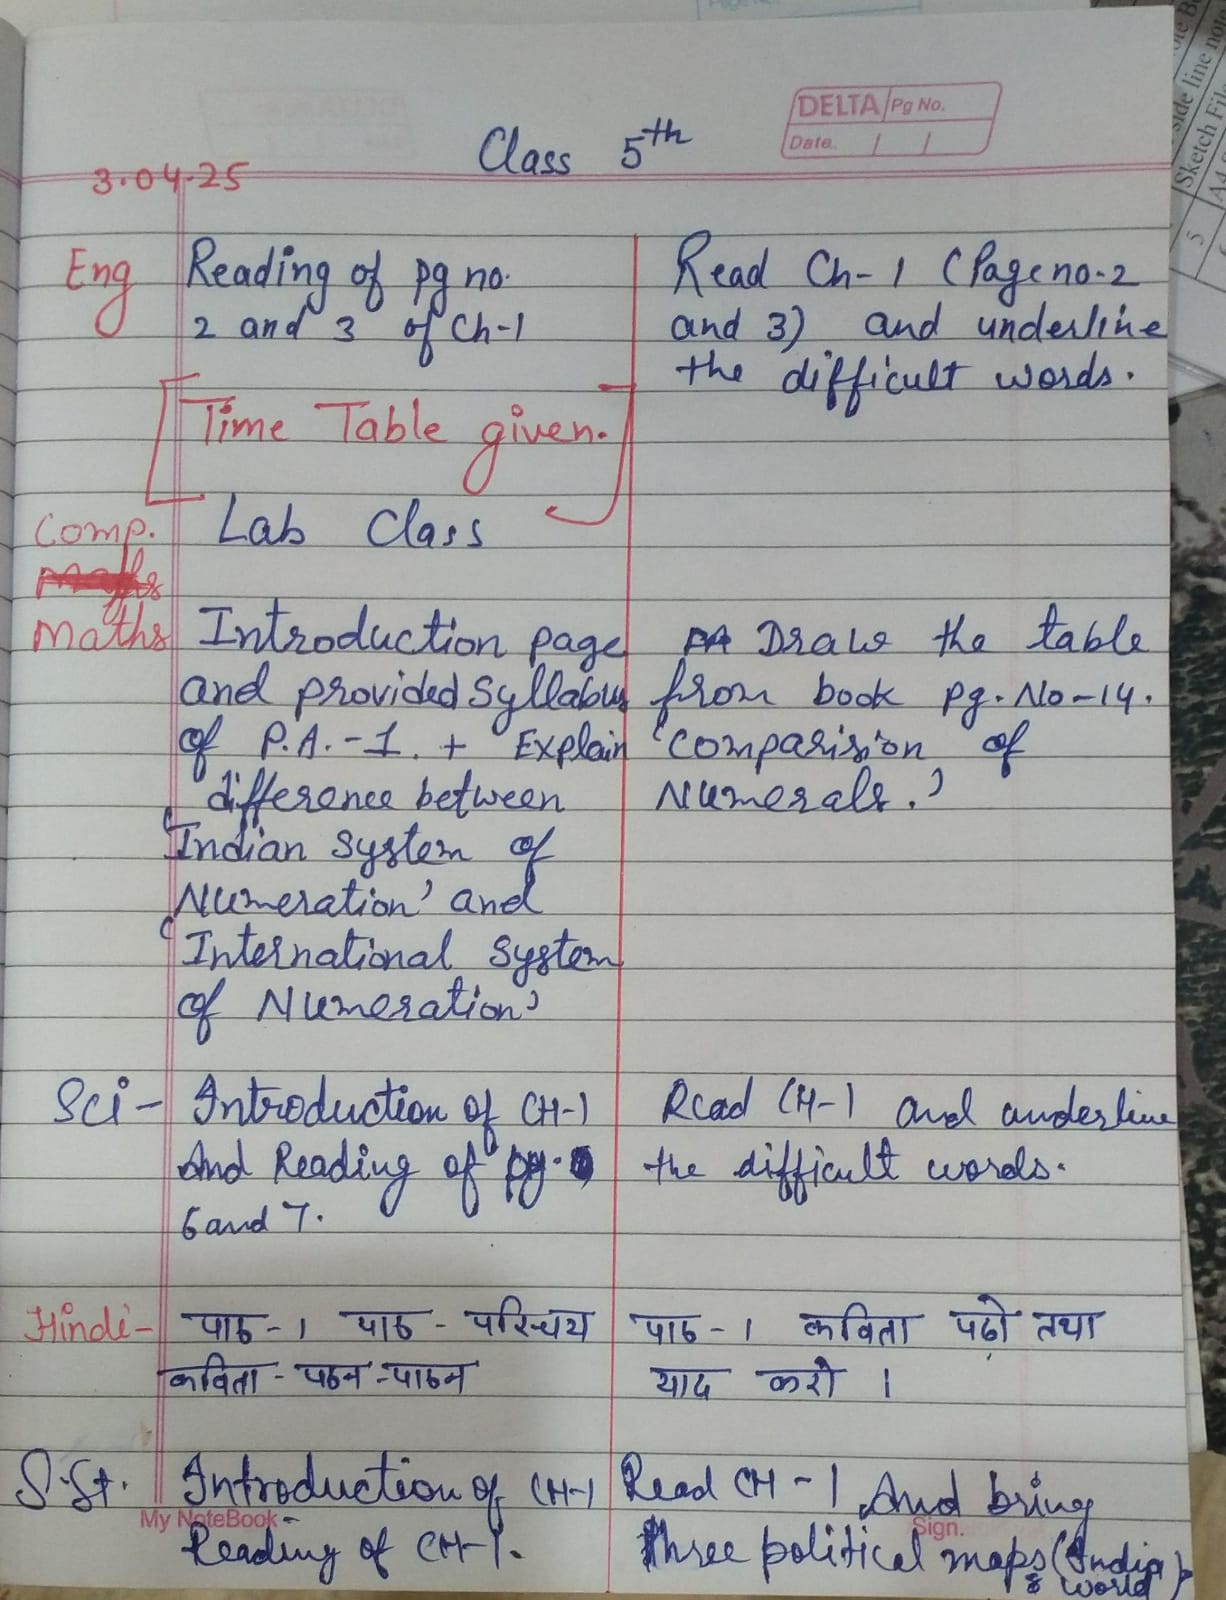 DELTA Pg No.
Date.
Class 5th
3.04.25
Eng Reading of pg no.
2 and 3 of Ch-1
Read Ch-1 (Page no-2
and 3) and underline
the difficult words.
[Time Table given.]
Comp. Lab Class
Maths Introduction page
and provided Syllabus
of P.A.-1. + Explain
difference between
'Indian System of
Numeration' and
'International System
of Numeration'
Draw the table
from book pg. No-14.
'Comparision of
Numerals.'
Sci- Introduction of CH-1
And Reading of pg.
6 and 7.
Read CH-1 and underline
the difficult words.
Hindi- पाठ-1 पाठ-परिचय
कविता-पठन-पाठन
पाठ-1 कविता पढो तथा
याद करो ।
S.St. Introduction of CH-1
Reading of CH-1.
Read CH-1 And bring
three political maps (India
& world)
My NoteBook
Sign.
Side line no
Sketch File
5